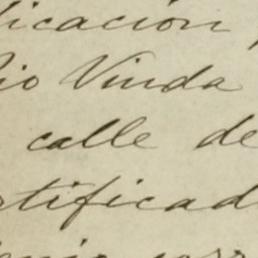 licación
io Vinda
calle de
rtificad